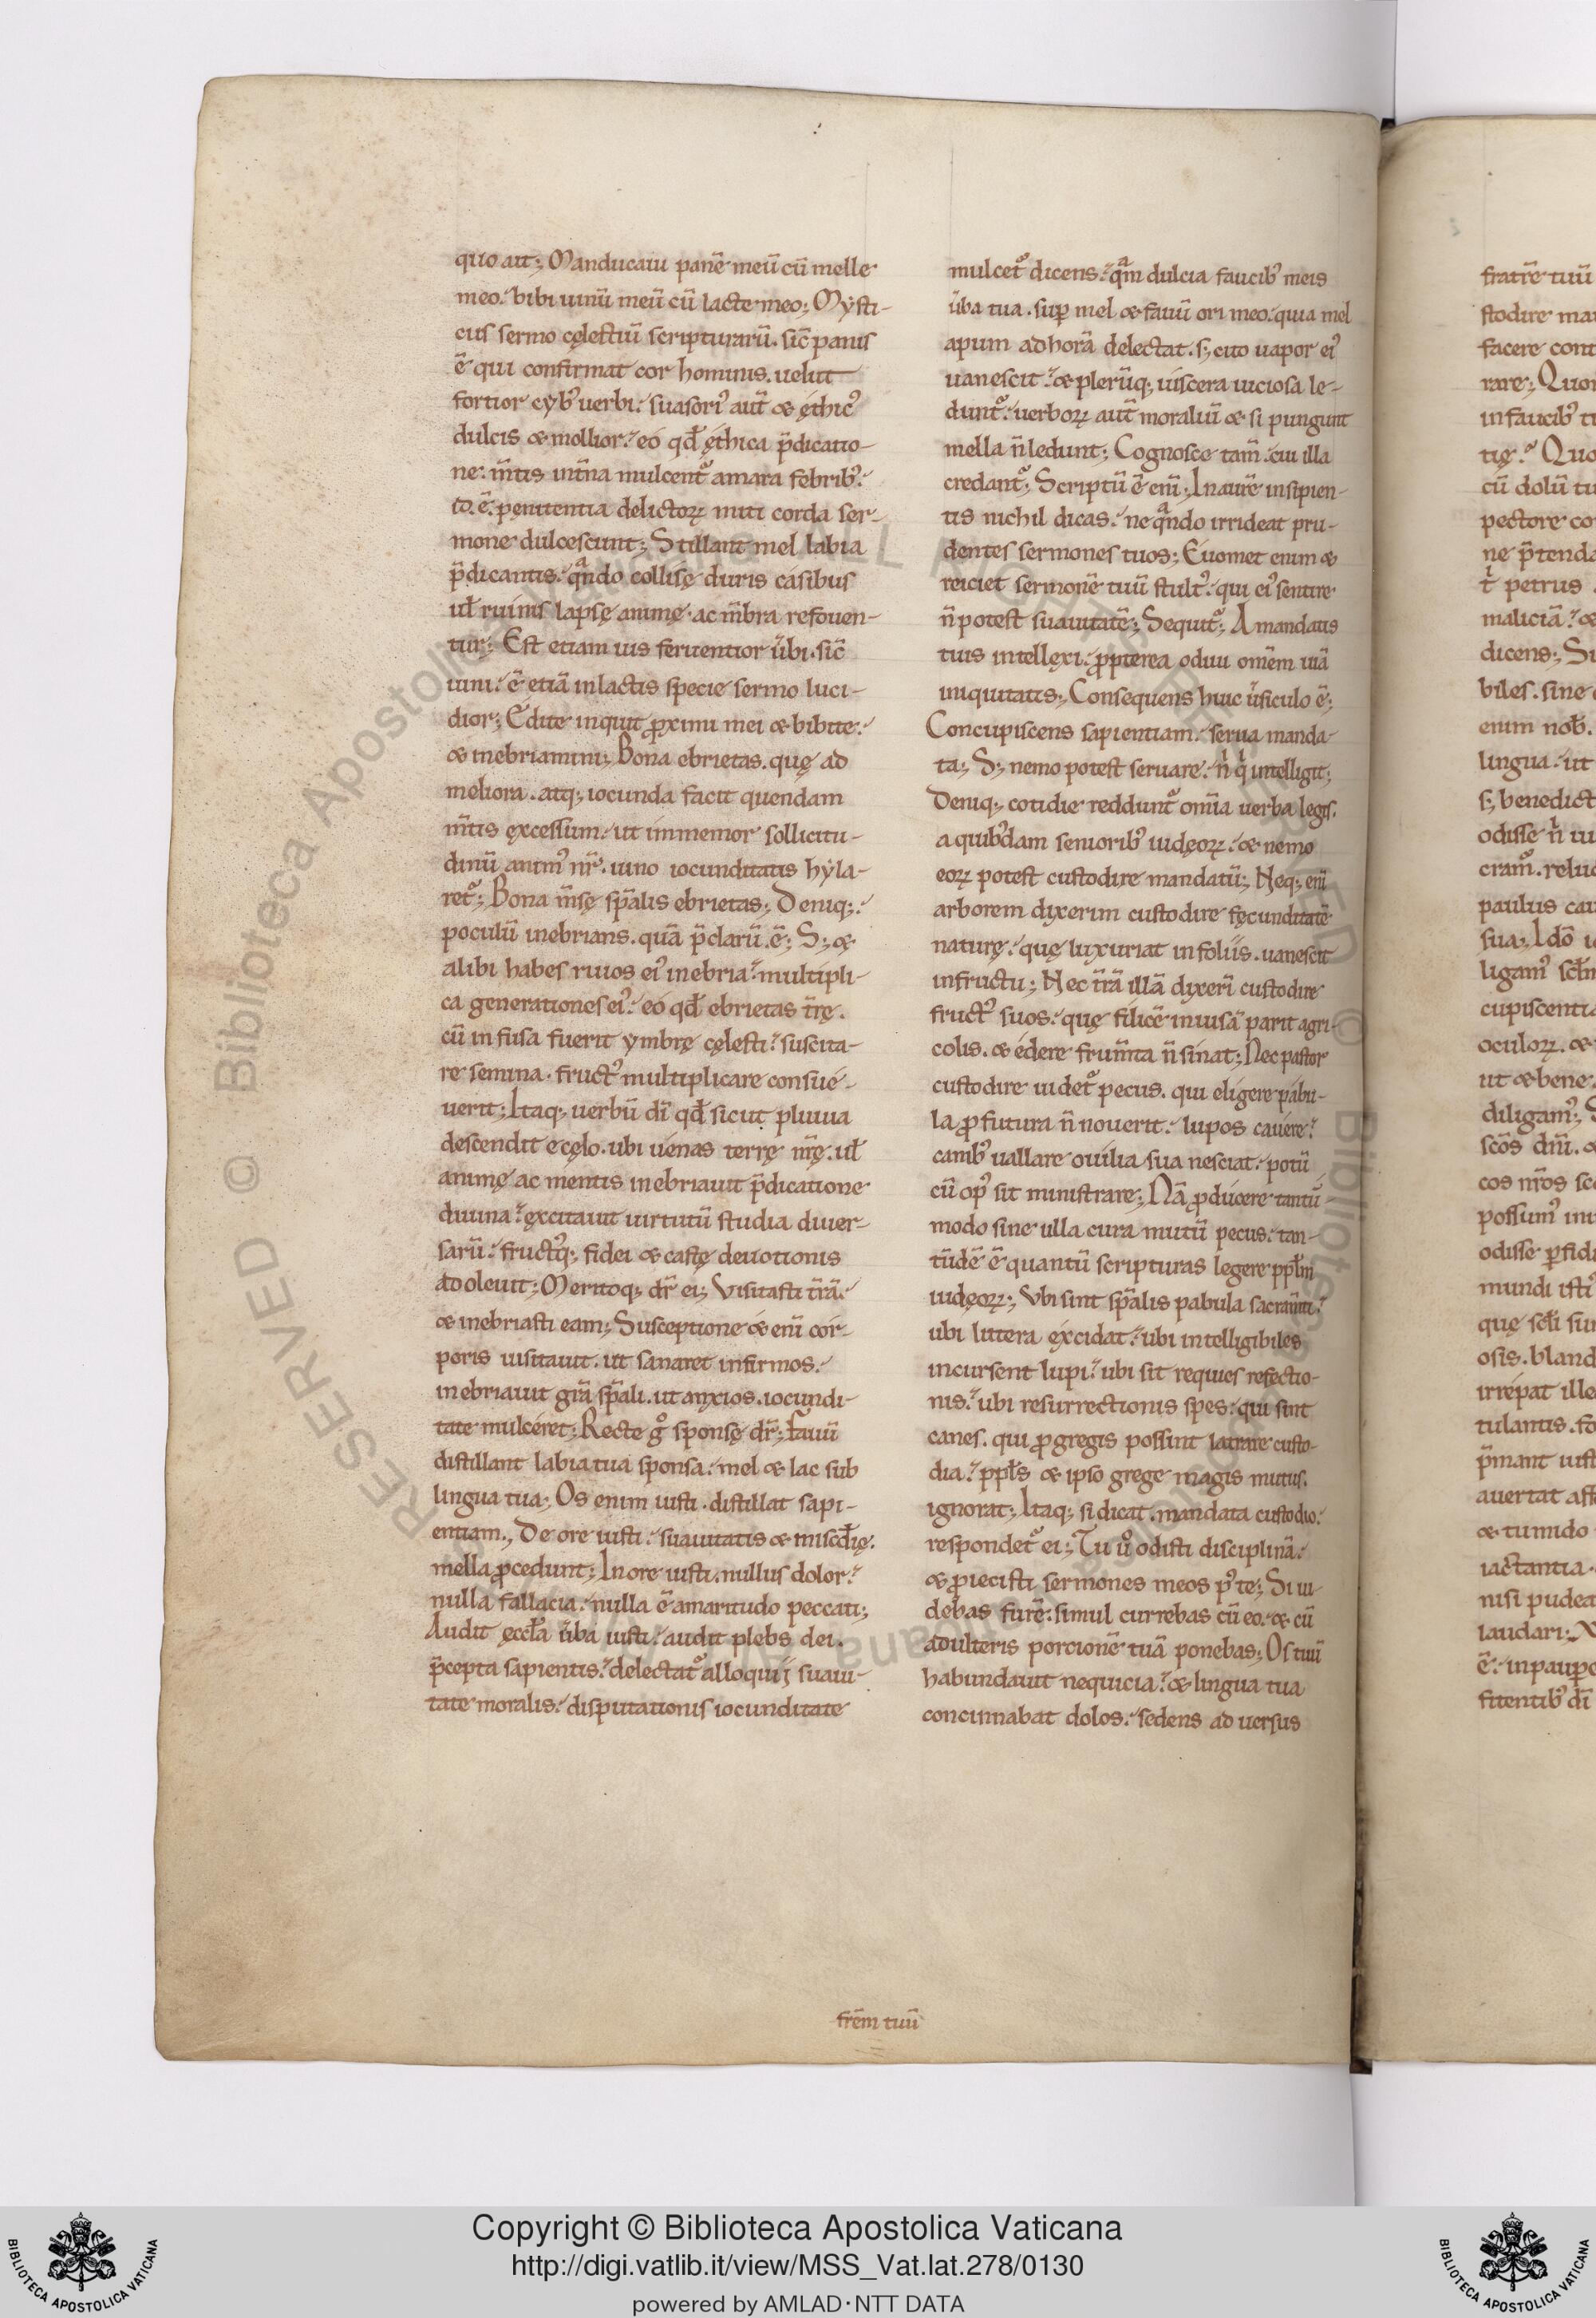 quo ait; Manducaui panē meū cū melle
meo. bibi uinū meū cū lacte meo; Mysti-
cus sermo cęlestiū scripturarū. sic̄ panis
ē qui confirmat cor hominis. uelut
fortior cybꝰ uerbi. suasoriꝰ aut̄ & ęthicꝰ
dulcis & mollior. eo qđ ęthica p̄dicatio-
ne. m̄tis int̄na mulcent᷑ amara febribꝰ.
id .ē. penitentia delictoꝝ miti corda ser-
mone dulcescunt; Stillant mel labia
p̄dicantis. qᵃndo collisę duris casibus
uł ruinis lapsę animę ac m̄bra refouen-
tur; Est etiam uis feruentior ūbi. sic̄
uini. ē etiā in lactis specie sermo luci-
dior; Edite inquit ꝓximi mei & bibite.
& inebriamini; Bona ebrietas. quę ad
meliora. atq; iocunda facit quendam
m̄tis ęxcessum. ut immemor sollicitu-
dinū animꝰ nr̄. uino iocunditatis hyla-
ret᷑; Bona m̄sę sp̄alis ebrietas; Deniq;
poculū inebrians. quā p̄clarū .ē; S; &
alibi habes riuos eiꝰ inebria. multipli-
ca generationes eiꝰ. eo qđ ebrietas t̄rę.
cū infusa fuerit ymbrę cęlesti. suscita-
re semina. fructꝰ multiplicare consué-
uerit; Itaq; uerbū dī qđ sicut pluuia
descendit e cęlo. ubi uenas terrę nr̄ę. uł
animę ac mentis inebriauit p̄dicatione
diuina. ęxcitauit uirtutū studia diuer-
sarū. fructꝰq; fidei & castę deuotionis
adoleuit; Meritoq; dr̄ ei; Visitasti t̄rā.
& inebriasti eam; Susceptione & enī cor-
poris uisitauit. ut sanaret infirmos.
inebriauit gr̄a sp̄ali. ut anxios. iocundi-
tate mulcéret; Recte g̊ sponsę dr̄; Fauū
distillant labia tua sponsa. mel & lac sub
lingua tua; Os enim iusti. distillat sapi-
entiam; De ore iusti. suauitatis & miscđię.
mella ꝓcedunt; In ore iusti. nullus dolor.
nulla fallacia. nulla ē amaritudo peccati;
Audit ęccła ūba iusti. audit plebs dei.
p̄cepta sapientis. delectat᷑ alloquij suaui-
tate moralis. disputationis iocunditate
mulcet᷑ dicens. qᵃm dulcia faucibꝰ meis
ūba tua. sup̱ mel & fauū ori meo. quia mel
apum ad horā delectat. s; cito uapor eiꝰ
uanescit. & plerūq; uiscera uiciosa le-
dunt᷑. uerboꝝ aut̄ moraliū & si pungunt
mella n̄ ledunt; Cognosce tam̄. cui illa
credant᷑; Scriptū ē enī; In aurē insipien-
tis nichil dicas. ne qᵃndo irrideat pru-
dentes sermones tuos; Euomet enim &
reiciet sermonē tuū stultꝰ. qui eiꝰ sentire
n̄ potest suauitatē; Sequit᷑; A mandatis
tuis intellęxi. ꝓpterea odiui omēm uiā
iniquitatis; Consequens huic ūsiculo ē;
Concupiscens sapientiam. serua manda-
ta; S; nemo potest seruare. nⁱ qⁱ intelligit;
Deniq; cotidie reddunt᷑ omīa uerba legis.
a quibꝰdam senioribꝰ iudęoꝝ. & nemo
eoꝝ potest custodire mandatū; Neq; enī
arborem dixerim custodire fęcunditatē
naturę. quę luxuriat in foliis. uanescit
in fructu; Nec t̄rā illā dixerī custodire
fructꝰ suos. quę filicē inuisā parit agri-
colis. & édere frum̄ta n̄ sinat; Nec pastor
custodire uidet᷑ pecus. qui eligere pabu-
la ꝓfutura n̄ nouerit. lupos cauére.
canibꝰ uallare ouilia sua nesciat. potū
cū opꝰ sit ministrare; Nā ꝓducere tantū-
modo sine ulla cura mutū pecus. tan-
tūdē ē quantū scripturas legere ppłm
iudęoꝝ; Vbi sint sp̄alis pabula sacram̄ti.
ubi littera éxcidat. ubi intelligibiles
incursent lupi. ubi sit requies refectio-
nis. ubi resurrectionis spes. qui sint
canes. qui ꝓ gregis possint latrare custo-
dia. ppłs & ipso grege magis mutus.
ignorat; Itaq; si dicat. mandata custodio.
respondet᷑ ei; Tu ů odisti disciplinā.
& ꝓiecisti sermones meos pꝰ te; Si ui-
debas furē. simul currebas cū eo. & cū
adulteris porcionē tuā ponebas; Os tuū
habundauit nequicia. & lingua tua
concinnabat dolos. sedens aduersus
frēm tuū
fratrē tuū
stodire
facere
in faucibꝰ
pectore
petrus
maliciā. &
dicens;
biles. sine
enim nob̄.
lingua. ut
s; benedict
paulus
cupiscentia
oculoꝝ. &
ut & bene
diligamꝰ;
possumꝰ
mundi isti
osis. bland
tulantis.
& tumido
iactantia.
nisi pudea
laudari;
fitentibꝰ dī
Copyright © Biblioteca Apostolica Vaticana
http://digi.vatlib.it/view/MSS_Vat.lat.278/0130
powered by AMLAD·NTT DATA
BIBLIOTECA APOSTOLICA VATICANA
BIBLIOTECA APOSTOLICA VATICANA